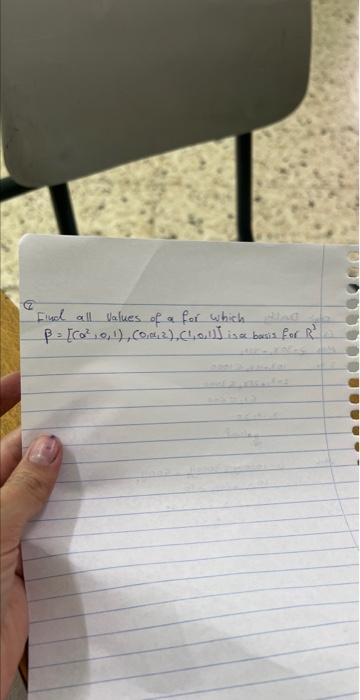 ②
Find all values of a for which
β = [(a²,0,1),(0,a,2),(1,0,1)] is a basis for R³